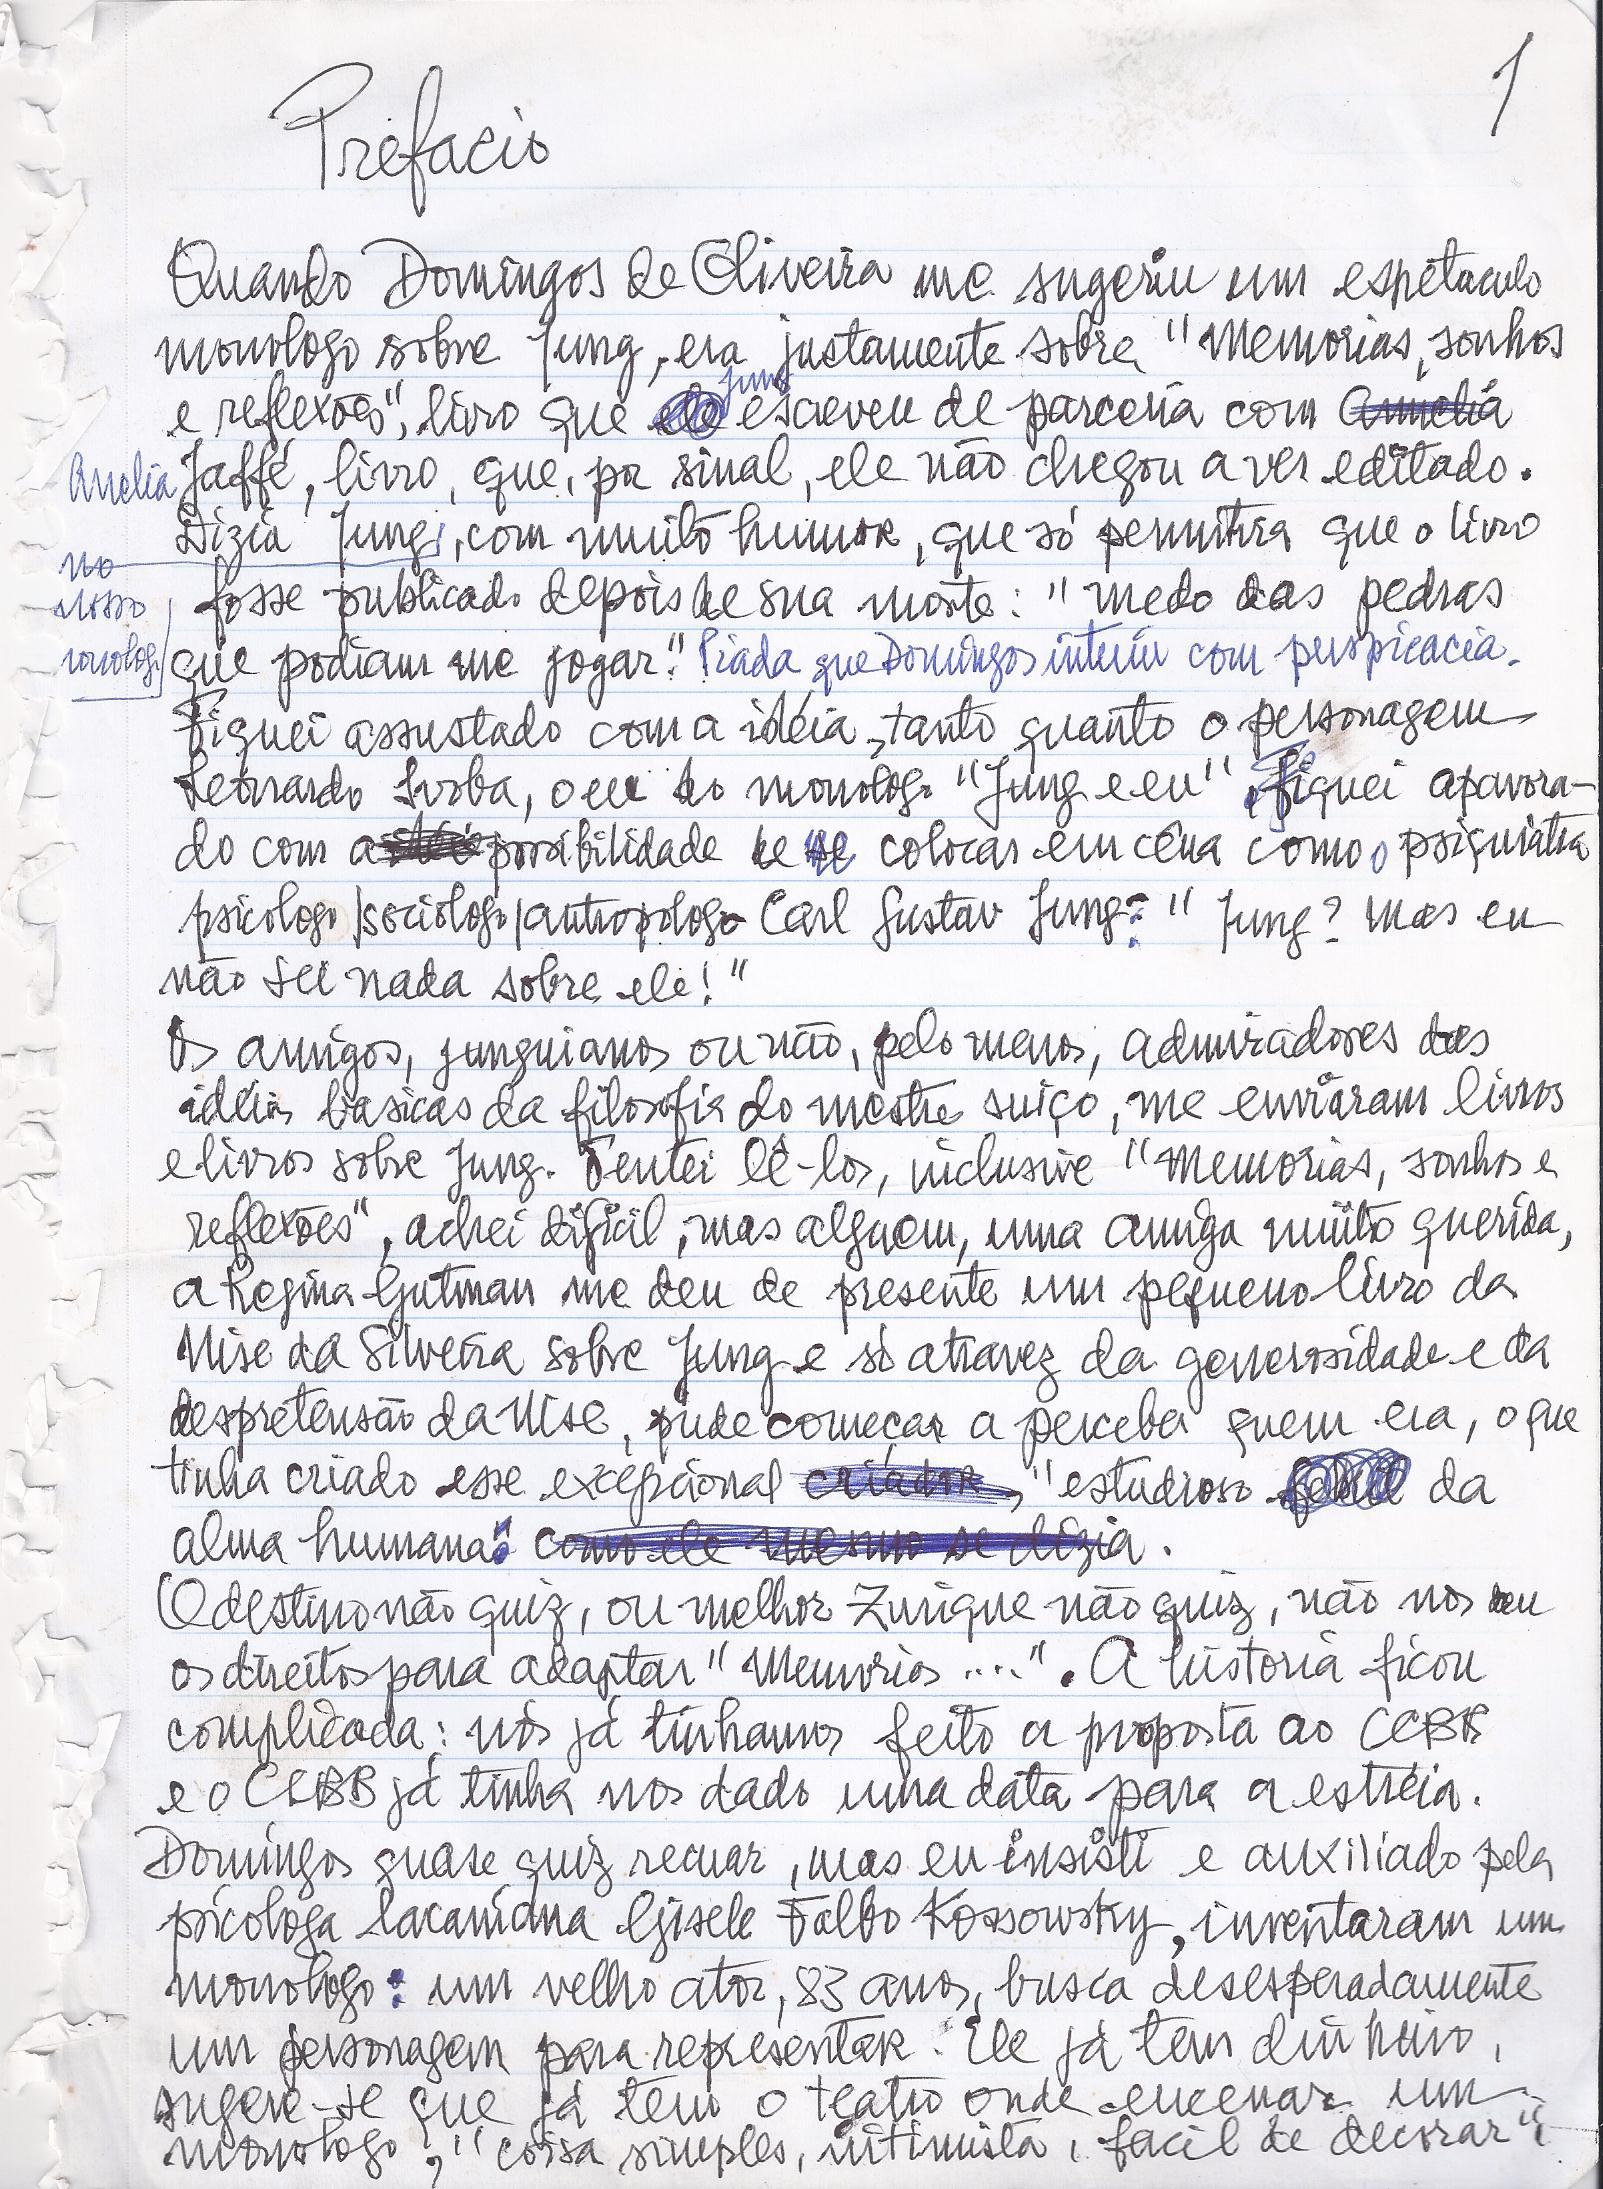 1
Prefacio
Quando Domingos de Oliveira me sugeriu um espetaculo
monologo sobre Jung, era justamente sobre "Memorias, sonhos
e reflexões", livro que ele Jung escreveu de parceria com Amelia
Anelia Jaffé, livro, que, por sinal, ele não chegou a ver editado.
Dizia Jung, com muito humor, que só permitira que o livro
no nosso monologo
fosse publicado depois de sua morte: "medo das pedras
que podiam me jogar". Piada que Domingos intuiu com perspicacia.
Fiquei assustado com a idéia, tanto quanto o personagem
Leonardo Svoba, o eu do monologo "Jung e eu", Fiquei apavora-
do com a possibilidade de me colocar em cena como o psiquiatra
psicologo/sociologo/antropologo Carl Gustav Jung: "Jung? Mas eu
não sei nada sobre ele!"
Os amigos, junguianos ou não, pelo menos, admiradores das
idéias basicas da filosofia do mestre suiço, me enviaram livros
e livros sobre Jung. Tentei lê-los, inclusive "Memorias, sonhos e
reflexões", achei dificil, mas alguem, uma amiga muito querida,
a Regina Gutman me deu de presente um pequeno livro da
Nise da Silveira sobre Jung e só atravez da generosidade e da
despretensão da Nise, pude começar a perceber quem era, o que
tinha criado esse excepcional criador, "estudioso da
alma humana": como ele mesmo se dizia.
O destino não quiz, ou melhor Zurique não quiz, não nos deu
os direitos para adaptar "Memorias ....". A historia ficou
complicada: nós já tinhamos feito a proposta ao CCBB
e o CCBB já tinha nos dado uma data para a estréia.
Domingos quase quiz recuar, mas eu insisti e auxiliado pela
psicologa lacaniana Gisele Falbo Kossowsky, inventaram um
monologo: um velho ator, 83 anos, busca desesperadamente
um personagem para representar. Ele já tem dinheiro,
sugere-se que já tem o teatro onde encenar um
monologo, "coisa simples, intimista, facil de decorar",